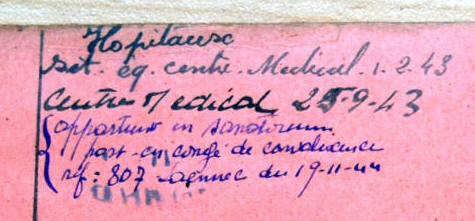 Hopitause
Set. eq. centre. Medical. 1-2.43
Centre Medical 25-9-43
en sanatorium
part en congé de convalescence
réf: 807 du 19-11-44